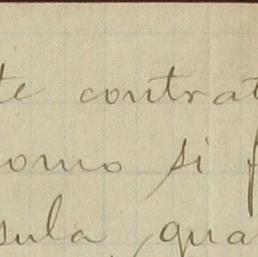 te contrat
omo si f
sula, qua